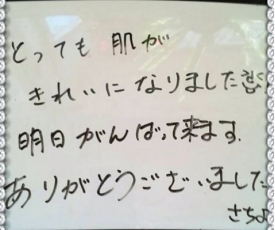 とっても 肌が
きれいになりました
明日 がんばって来ます.
ありがとうございました
さちよ